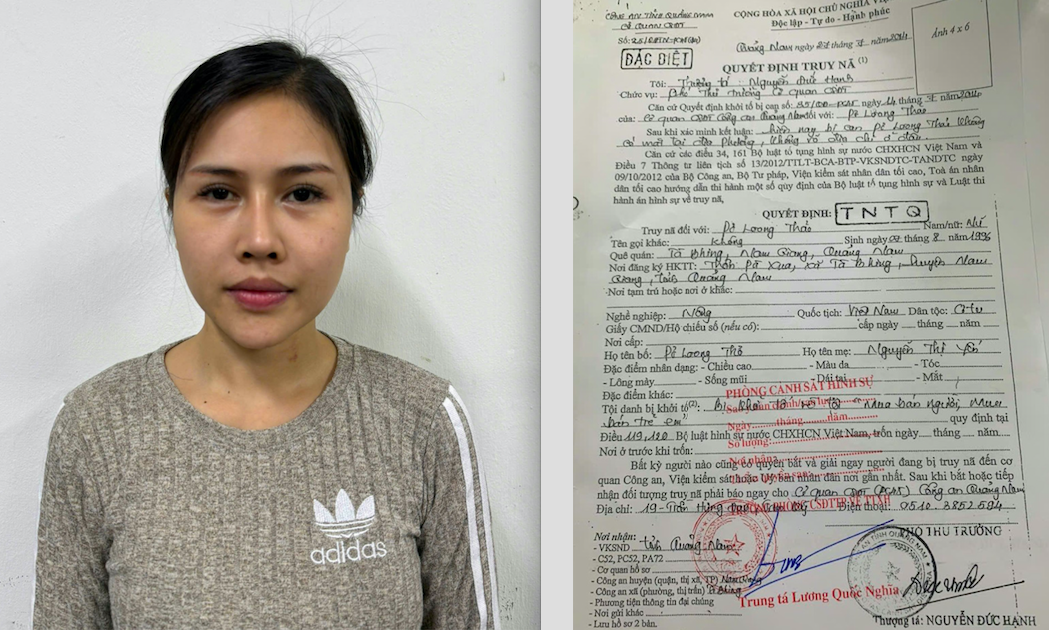 adidas
CÔNG AN TỈNH QUẢNG NAM
CƠ QUAN CSĐT
CỘNG HÒA XÃ HỘI CHỦ NGHĨA VIỆ
Độc lập - Tự do - Hạnh phúc
Số:
Quảng Nam, ngày tháng năm 2014
Ảnh 4 x 6
ĐẶC BIỆT
QUYẾT ĐỊNH TRUY NÃ (1)
Tôi: Thượng tá: Nguyễn Đức Hạnh
Chức vụ: Phó Thủ trưởng Cơ quan CSĐT
Căn cứ Quyết định khởi tố bị can số: ngày 14 tháng năm 2014
của: Cơ quan CSĐT Công an Quảng Nam đối với: Pơ Loong Thảo
Sau khi xác minh kết luận: hiện nay bị can Pơ Loong Thảo không
có mặt tại địa phương, không rõ địa chỉ ở đâu.
Căn cứ các điều 34, 161 Bộ luật tố tụng hình sự nước CHXHCN Việt Nam và
Điều 7 Thông tư liên tịch số 13/2012/TTLT-BCA-BTP-VKSNDTC-TANDTC ngày
09/10/2012 của Bộ Công an, Bộ Tư pháp, Viện kiểm sát nhân dân tối cao, Toà án nhân
dân tối cao hướng dẫn thi hành một số quy định của Bộ luật tố tụng hình sự và Luật thi
hành án hình sự về truy nã,
QUYẾT ĐỊNH: TNTQ
Truy nã đối với: Pơ Loong Thảo Nam/nữ: Nữ
Tên gọi khác: Không Sinh ngày 02 tháng 8 năm 1996
Quê quán: Tà Bhing, Nam Giang, Quảng Nam
Nơi đăng ký HKTT: Thôn Pà Xua, xã Tà Bhing, huyện Nam
Giang, tỉnh Quảng Nam
Nơi tạm trú hoặc nơi ở khác:
Nghề nghiệp: Nông Quốc tịch: Việt Nam Dân tộc: Cơ tu
Giấy CMND/Hộ chiếu số (nếu có): cấp ngày tháng năm
Nơi cấp:
Họ tên bố: Pơ Loong Họ tên mẹ: Nguyễn Thị Yến
Đặc điểm nhân dạng: - Chiều cao - Màu da - Tóc
- Lông mày - Sống mũi - Dái tai - Mắt
Đặc điểm khác:
PHÒNG CẢNH SÁT HÌNH SỰ
Tội danh bị khởi tố(2): Bị khởi tố "Mua bán người, Mua
bán trẻ em" quy định tại
Ngày tháng năm
Số lượng:
Điều 119, 120 Bộ luật hình sự nước CHXHCN Việt Nam, trốn ngày tháng năm
Nơi ở trước khi trốn:
Bất kỳ người nào cũng có quyền bắt và giải ngay người đang bị truy nã đến cơ
quan Công an, Viện kiểm sát hoặc Uỷ ban nhân dân nơi gần nhất. Sau khi bắt hoặc tiếp
nhận đối tượng truy nã phải báo ngay cho Cơ quan CSĐT (PC45) Công an Quảng Nam
Địa chỉ: 19-Trần Hưng Đạo Điện thoại: 0510.3852594
PHÓ THỦ TRƯỞNG
Nơi nhận:
- VKSND tỉnh Quảng Nam
- C52, PC52, PA72
- Cơ quan hồ sơ
- Công an huyện (quận, thị xã, TP) Nam Giang
- Công an xã (phường, thị trấn) Tà Bhing
- Phương tiện thông tin đại chúng
- Nơi gửi khác
- Lưu hồ sơ 2 bản.
Trung tá Lương Quốc Nghĩa
Thượng tá: NGUYỄN ĐỨC HẠNH